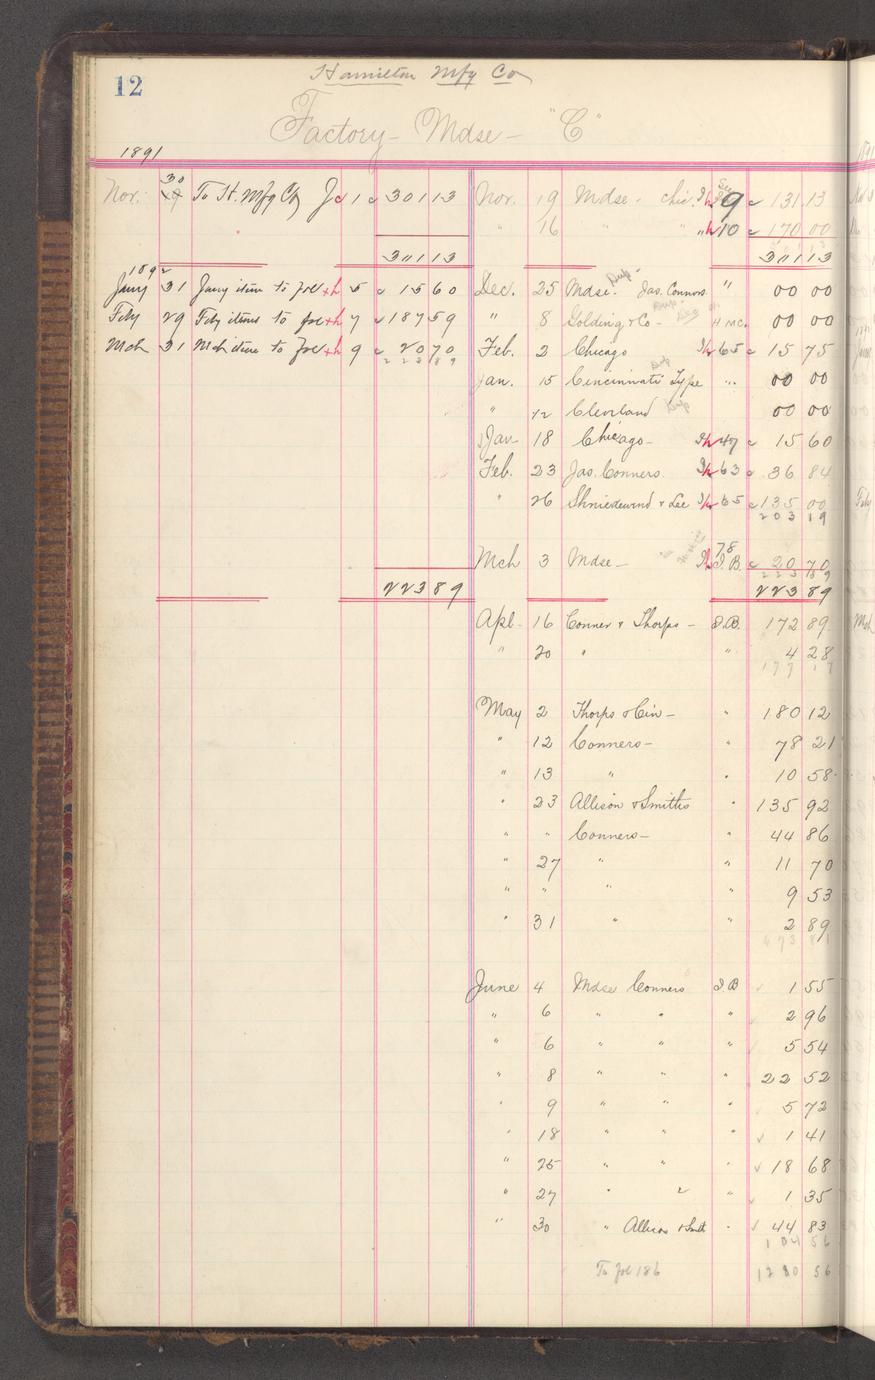 12
Hamilton Mfg Co
Factory - Mdse - "C"
1891
Nov. 30 To H. Mfg Co J 1 301 13
301 13
1892
Jany 31 Jany items to Joe 5 15 60
Feby 29 Feby items to Joe 7 187 59
Mch 31 Mch items to Joe 9 20 70
223 89
223 89
Nov. 19 Mdse - Chic. 9 131 13
" 16 " " " 10 170 00
301 13
Dec. 25 Mdse. Dup- Jas. Connors " 00 00
" 8 Golding & Co - H M C. 00 00
Feb. 2 Chicago 65 15 75
Jan. 15 Cincinnati Type " 00 00
" 12 Cleveland Dup 00 00
Jan 18 Chicago - 47 15 60
Feb. 23 Jas. Conners. 63 36 84
" 26 Shniedewind & Lee 65 135 00
203 19
Mch 3 Mdse - 78 I. B. 20 70
223 89
223 89
Apl - 16 Conner & Thorps - I. B. 172 89
" 20 " " 4 28
177 17
May 2 Thorps & Cin - " 180 12
" 12 Conners - " 78 21
" 13 " " 10 58
" 23 Allison & Smiths " 135 92
" " Conners - " 44 86
" 27 " " 11 70
" " " " 9 53
" 31 " " 2 89
473 81
June 4 Mdse Conners I. B 1 55
" 6 " " " 2 96
" 6 " " " 5 54
" 8 " " " 22 52
" 9 " " " 5 72
" 18 " " " 1 41
" 25 " " " 18 68
" 27 " " " 1 35
" 30 " Allison & Smith " 44 83
104 56
To Joe 186 1280 56